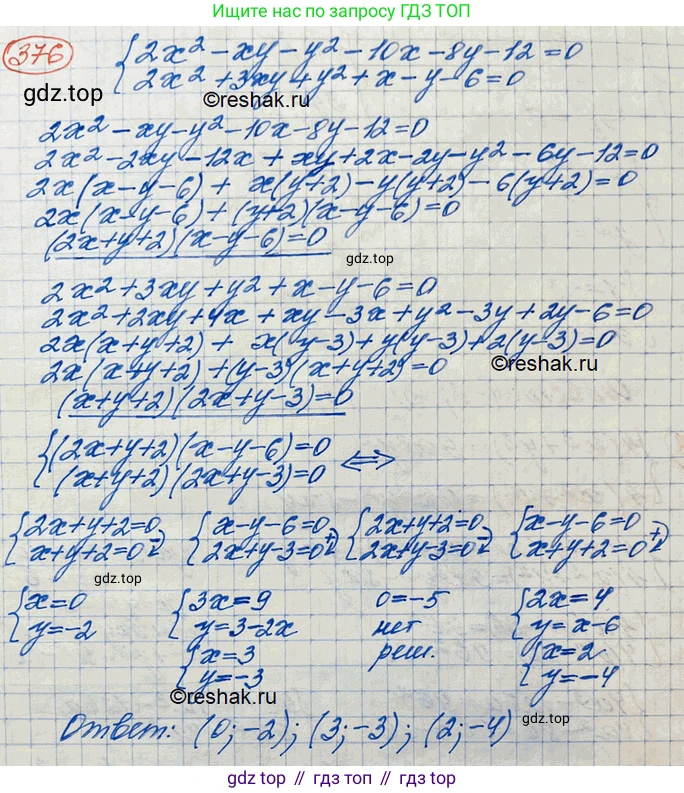 Ищите нас по запросу ГДЗ ТОП
376
{2x² - xy - y² - 10x - 8y - 12 = 0
2x² + 3xy + y² + x - y - 6 = 0
gdz.top
©reshak.ru
2x² - xy - y² - 10x - 8y - 12 = 0
2x² - 2xy - 12x + xy + 2x - 2y - y² - 6y - 12 = 0
2x(x - y - 6) + x(y + 2) - y(y + 2) - 6(y + 2) = 0
2x(x - y - 6) + (y + 2)(x - y - 6) = 0
(2x + y + 2)(x - y - 6) = 0
gdz.top
2x² + 3xy + y² + x - y - 6 = 0
2x² + 2xy + 4x + xy - 3x + y² - 3y + 2y - 6 = 0
2x(x + y + 2) + x(y - 3) + y(y - 3) + 2(y - 3) = 0
2x(x + y + 2) + (y - 3)(x + y + 2) = 0
©reshak.ru
(x + y + 2)(2x + y - 3) = 0
{(2x + y + 2)(x - y - 6) = 0
(x + y + 2)(2x + y - 3) = 0 ⇔
{2x + y + 2 = 0 {x - y - 6 = 0 {2x + y + 2 = 0 {x - y - 6 = 0
x + y + 2 = 0 2x + y - 3 = 0 2x + y - 3 = 0 x + y + 2 = 0
gdz.top
{x = 0 {3x = 9 0 = -5 {2x = 4
y = -2 y = 3 - 2x нет y = x - 6
{x = 3 реш. {x = 2
y = -3 y = -4
©reshak.ru
Ответ: (0; -2); (3; -3); (2; -4)
gdz.top // гдз топ // gdz top